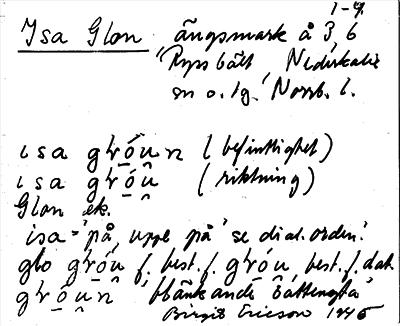 1-4.
Isa Glon ängsmark å 3, 6
Ryssbält Nederkalix
sn o. tg. Norrb. l.
ısa gʹró́u n (befintlighet)
ısa gʹró û (riktning)
Glon ek.
isa = 'på, uppe på' se dial. orden.
glo gʹró́u f. best. f. gʹróu, best. f. dat.
gʹró û n 'blänkande vattenyta'
Birgit Ericson 1945